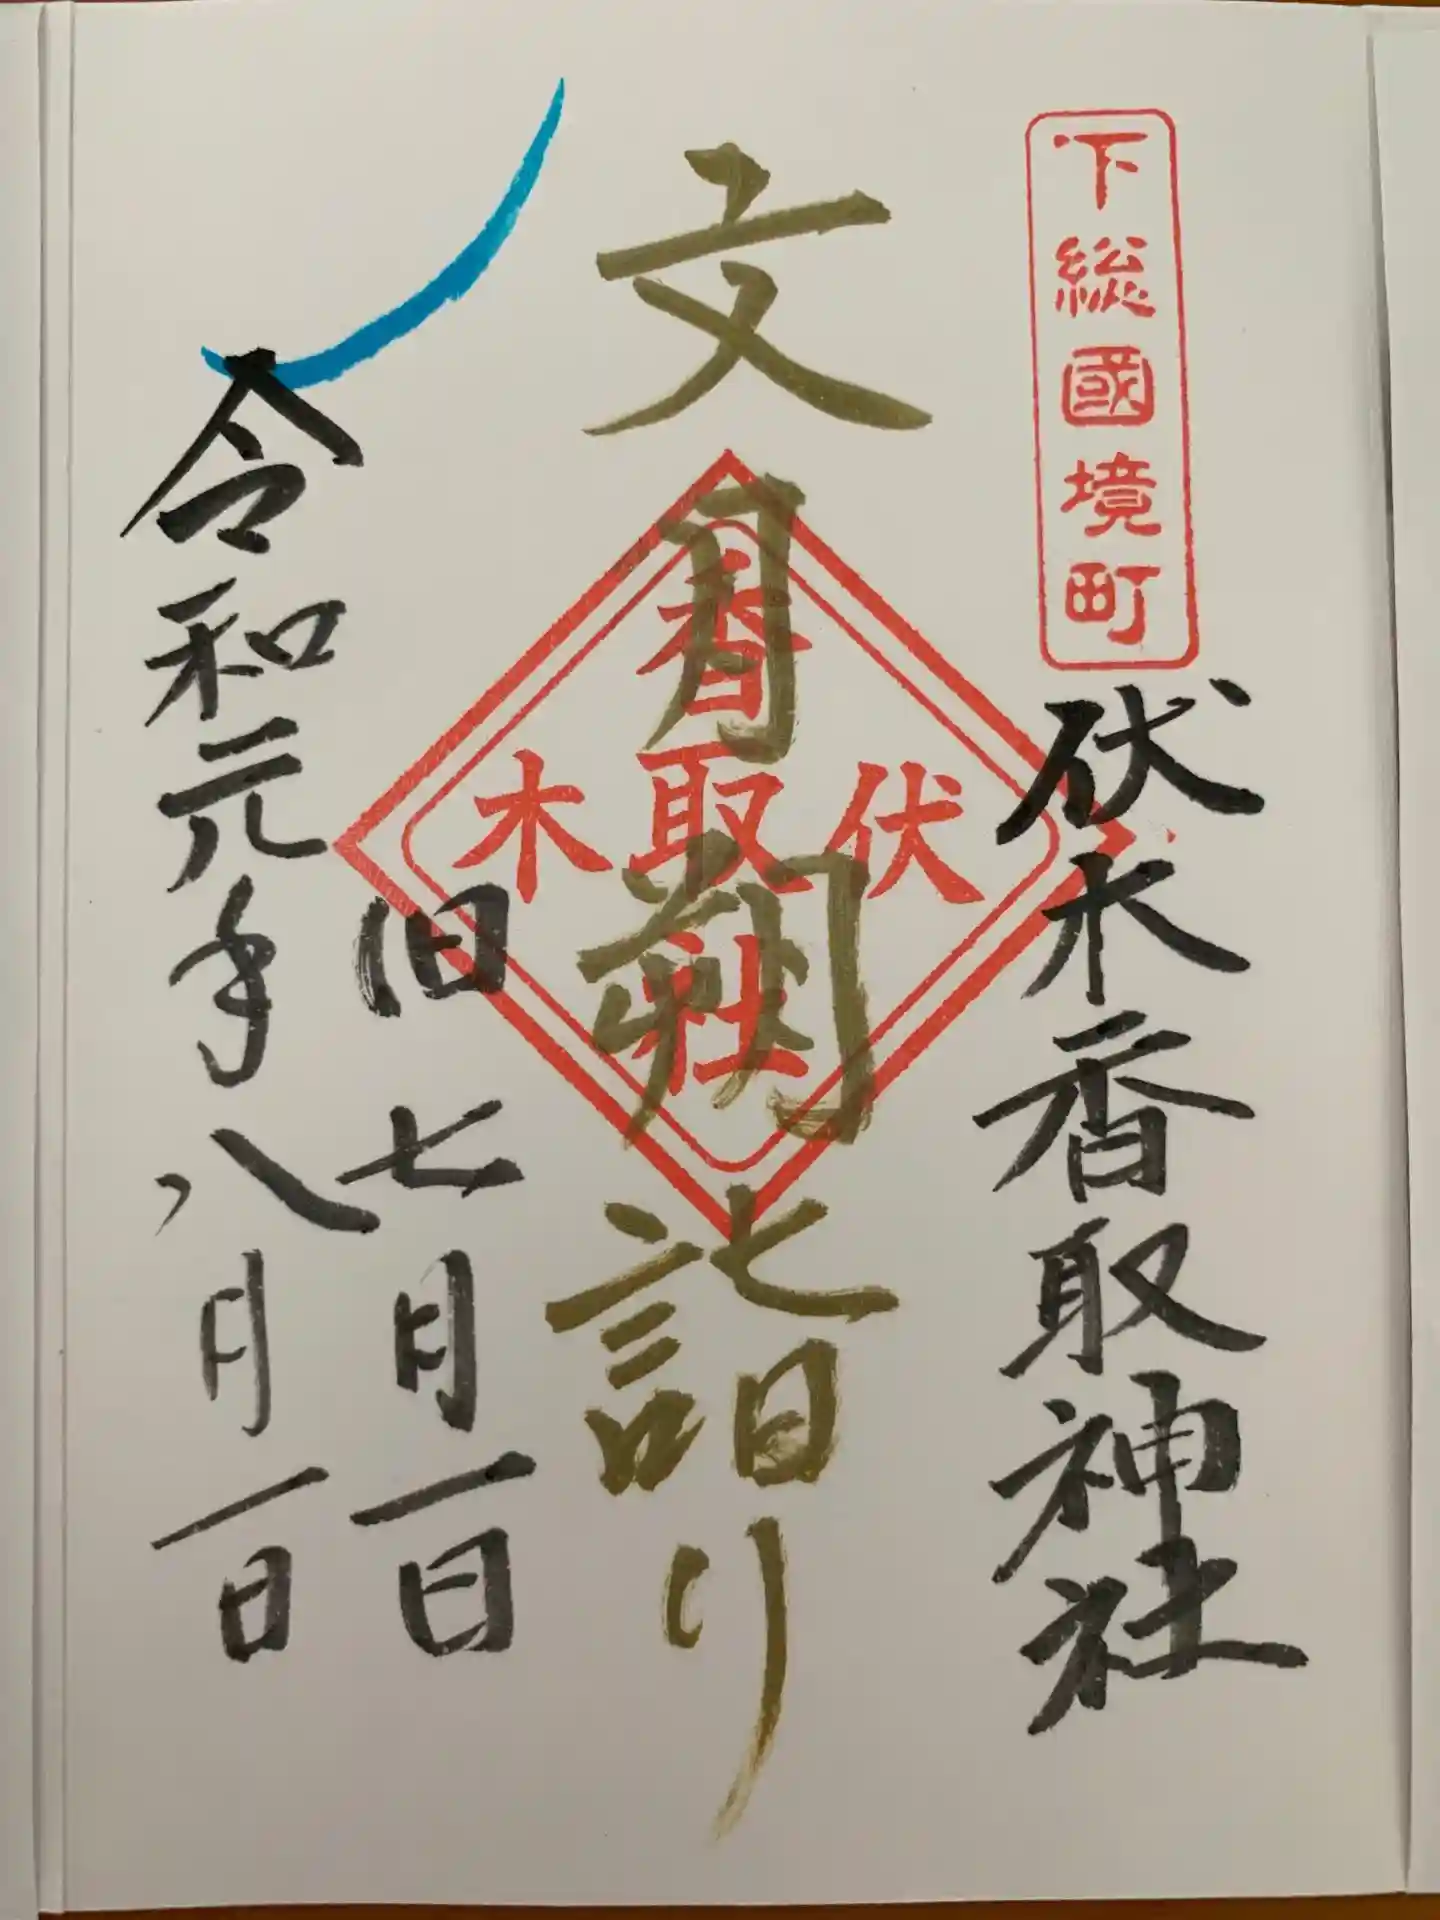 下総國境町
伏木香取神社
文月朔詣り
香取社
伏木
旧七月一日
令和元年八月一日